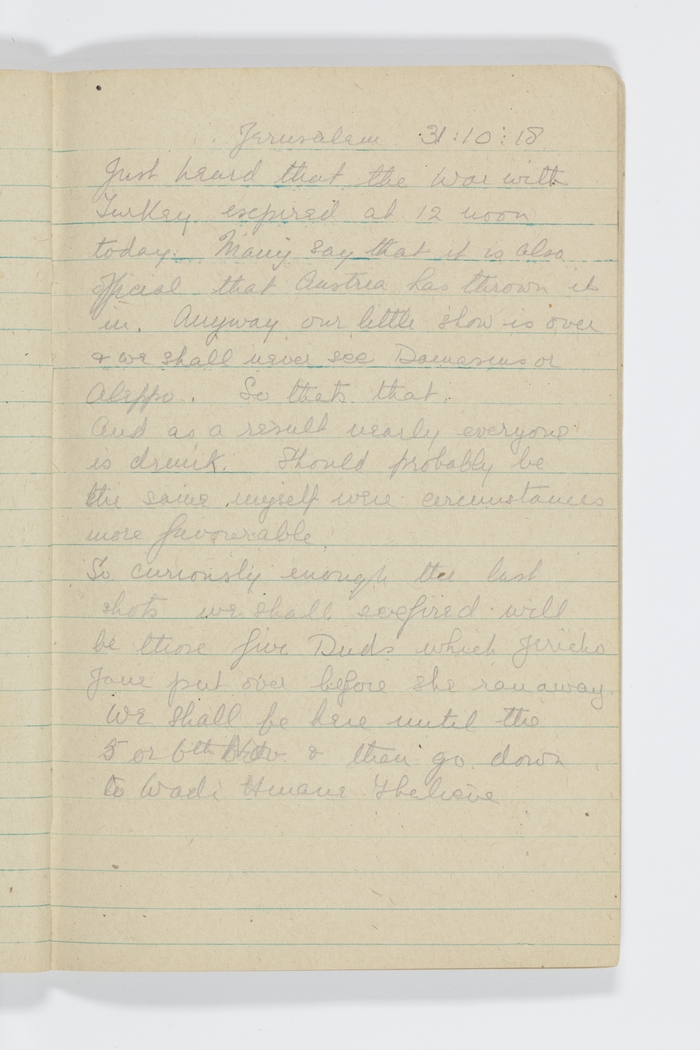 Jerusalem 31:10:18
Just heard that the War with
Turkey expired at 12 noon
today. Many say that it is also
official that Austria has thrown it
in. Anyway our little show is over
& we shall never see Damascus or
Aleppo. So thats that.
And as a result nearly everyone
is drunk. Should probably be
the same myself were circumstances
more favourable
So curiously enough the last
shots we shall see fired will
be those five Duds which Jericho
Jane put over before she ran away.
We shall be here until the
5 or 6th Nov & then go down
to Wadi I believe